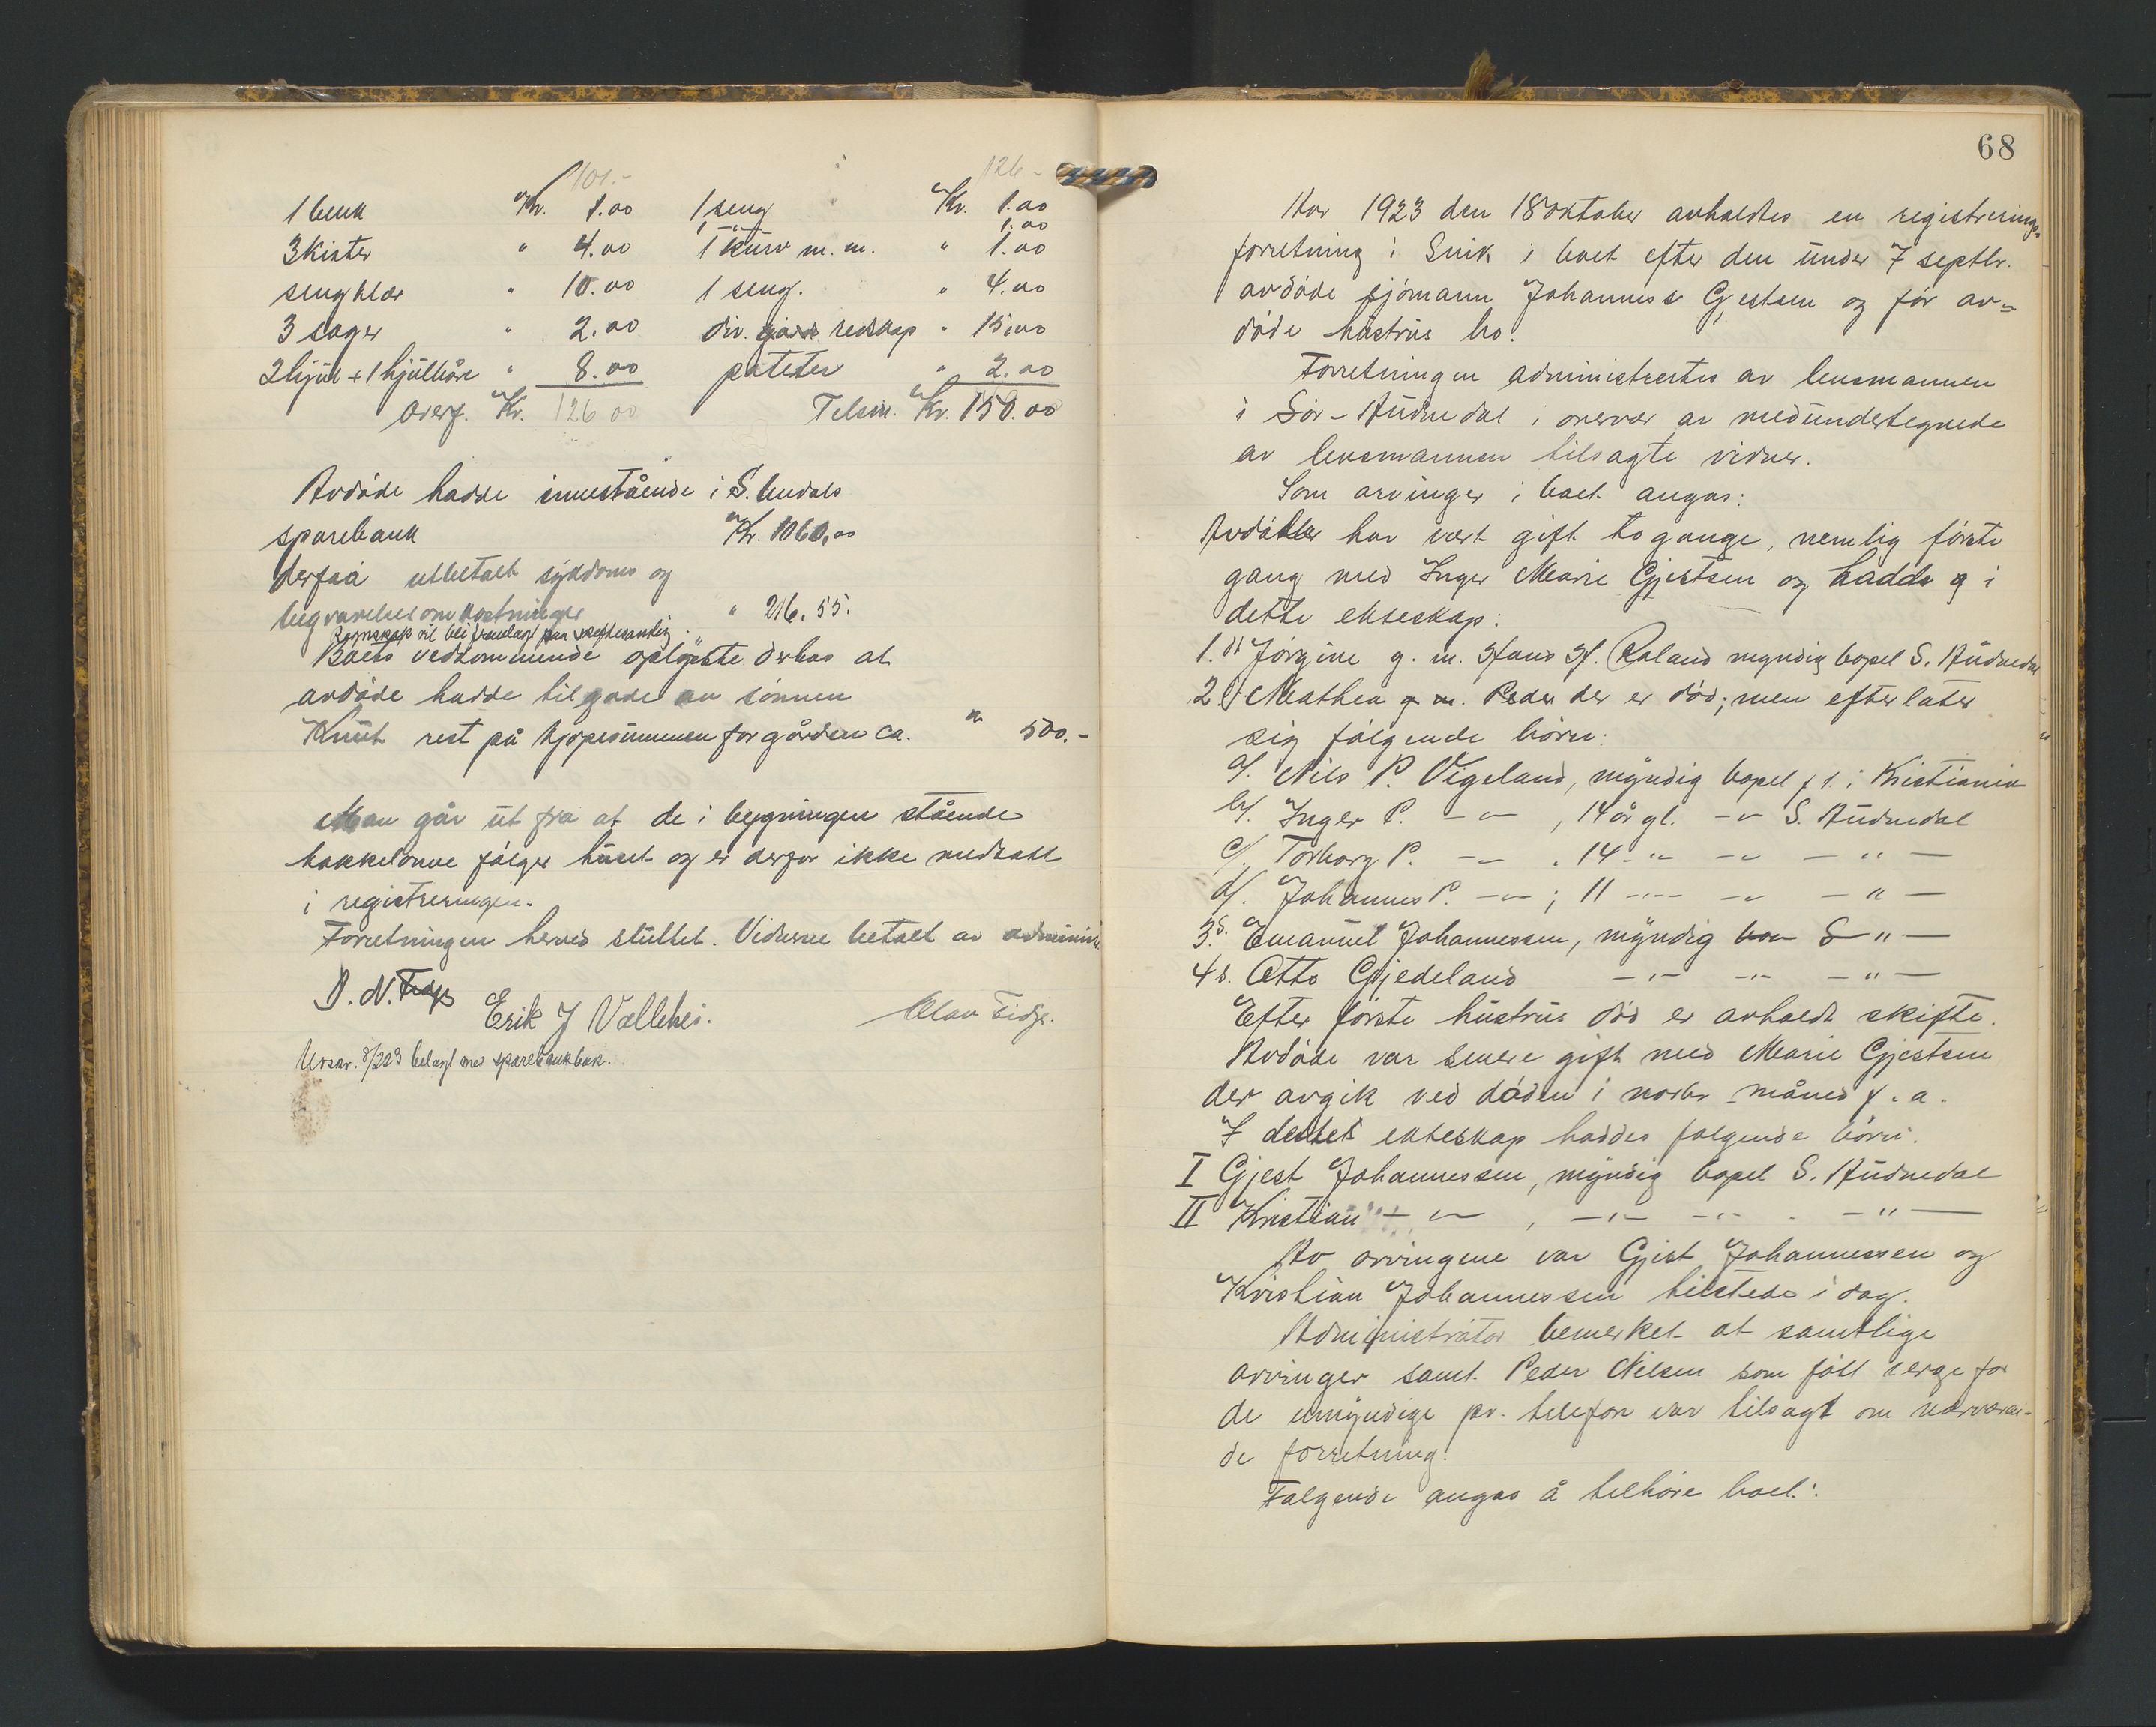 101.-
1 benk Kr. 1.00
3 Kister " 4.00
sengklær " 10.00
3 sager " 2.00
2 hjul + 1 hjulbåre " 8.00
Overf. Kr. 126 00
126 -
1 seng Kr. 1.00
1 -"- 1.00
1 kurv m. m. " 1.00
1 seng. " 4.00
div. gårds redskap " 15.00
poteter " 2.00
Tilsm. Kr. 150.00
Avdöde hadde innestående i S. Undals
sparebank Kr. 1060,00
derfra utbetalt sykdoms og
begravelsesomkostninger " 216.55.
Regnskap vil bli fremlagt paa skiftesamling.
Boets vedkommende oplyste derhos at
avdöde hadde tilgode av sönnen
Knut rest på kjøpesummen for gården ca. Kr 500.-
Man går ut fra at de i bygningen stående
kakkelovne fölger huset og er derfor ikke medtatt
i registreringen.
Forretningen herved sluttet. Vidnene betalt av administr.
D. N. Fidje
Erik J Vallehei.
Olav Fidje.
Utskr. 8/2 23 belagt med sparebankbok.
68
Aar 1923 den 18 oktober avholdtes en registrerings-
forretning i Snik i boet efter den under 7 septbr.
avdöde sjömann Johannes Gjestsen og för av-
döde hustrus bo.
Forretningen administrertes av lensmannen
i Sör-Audnedal i overvær av medundertegnede
av lensmannen tilsagte vidner.
Som arvinger i boet angas:
Avdöde har vært gift to gange, nemlig förste
gang med Inger Marie Gjestsen og hadde i
dette ekteskap:
1. dt Jörgine g. m. Hans H. Röland myndig bopel S. Audnedal
2. Mathea g. m. Peder der er död; men efterlater
sig fölgende börn:
a/. Nils P. Vigeland, myndig bopel f. t. i Kristiania
b/. Inger P. -"- , 14 år gl. -"- S. Audnedal
c/. Torborg P. -"- , 14 -"- -"- - " -
d/. Johannes P. -"- ; 11 -"- -"- - " -
3. s. Emanuel Johannessen, myndig bor S - " -
4 s. Otto Gjedeland -"- -"- - " -
Efter förste hustrus död er avholdt skifte.
Avdöde var senere gift med Marie Gjestsen
der avgik ved döden i novbr. måned f. a.
I dette ekteskap haddes fölgende börn.
I Gjest Johannessen, myndig bopel S. Audnedal
II Kristian -"- , -"- -"- - " -
Av arvingene var Gjest Johannessen og
Kristian Johannessen tilstede i dag.
Administrator bemerket at samtlige
arvinger samt Peder Nilsen som född verge for
de umyndige pr. telefon var tilsagt om nærværen-
de forretning.
Fölgende angas å tilhöre boet: